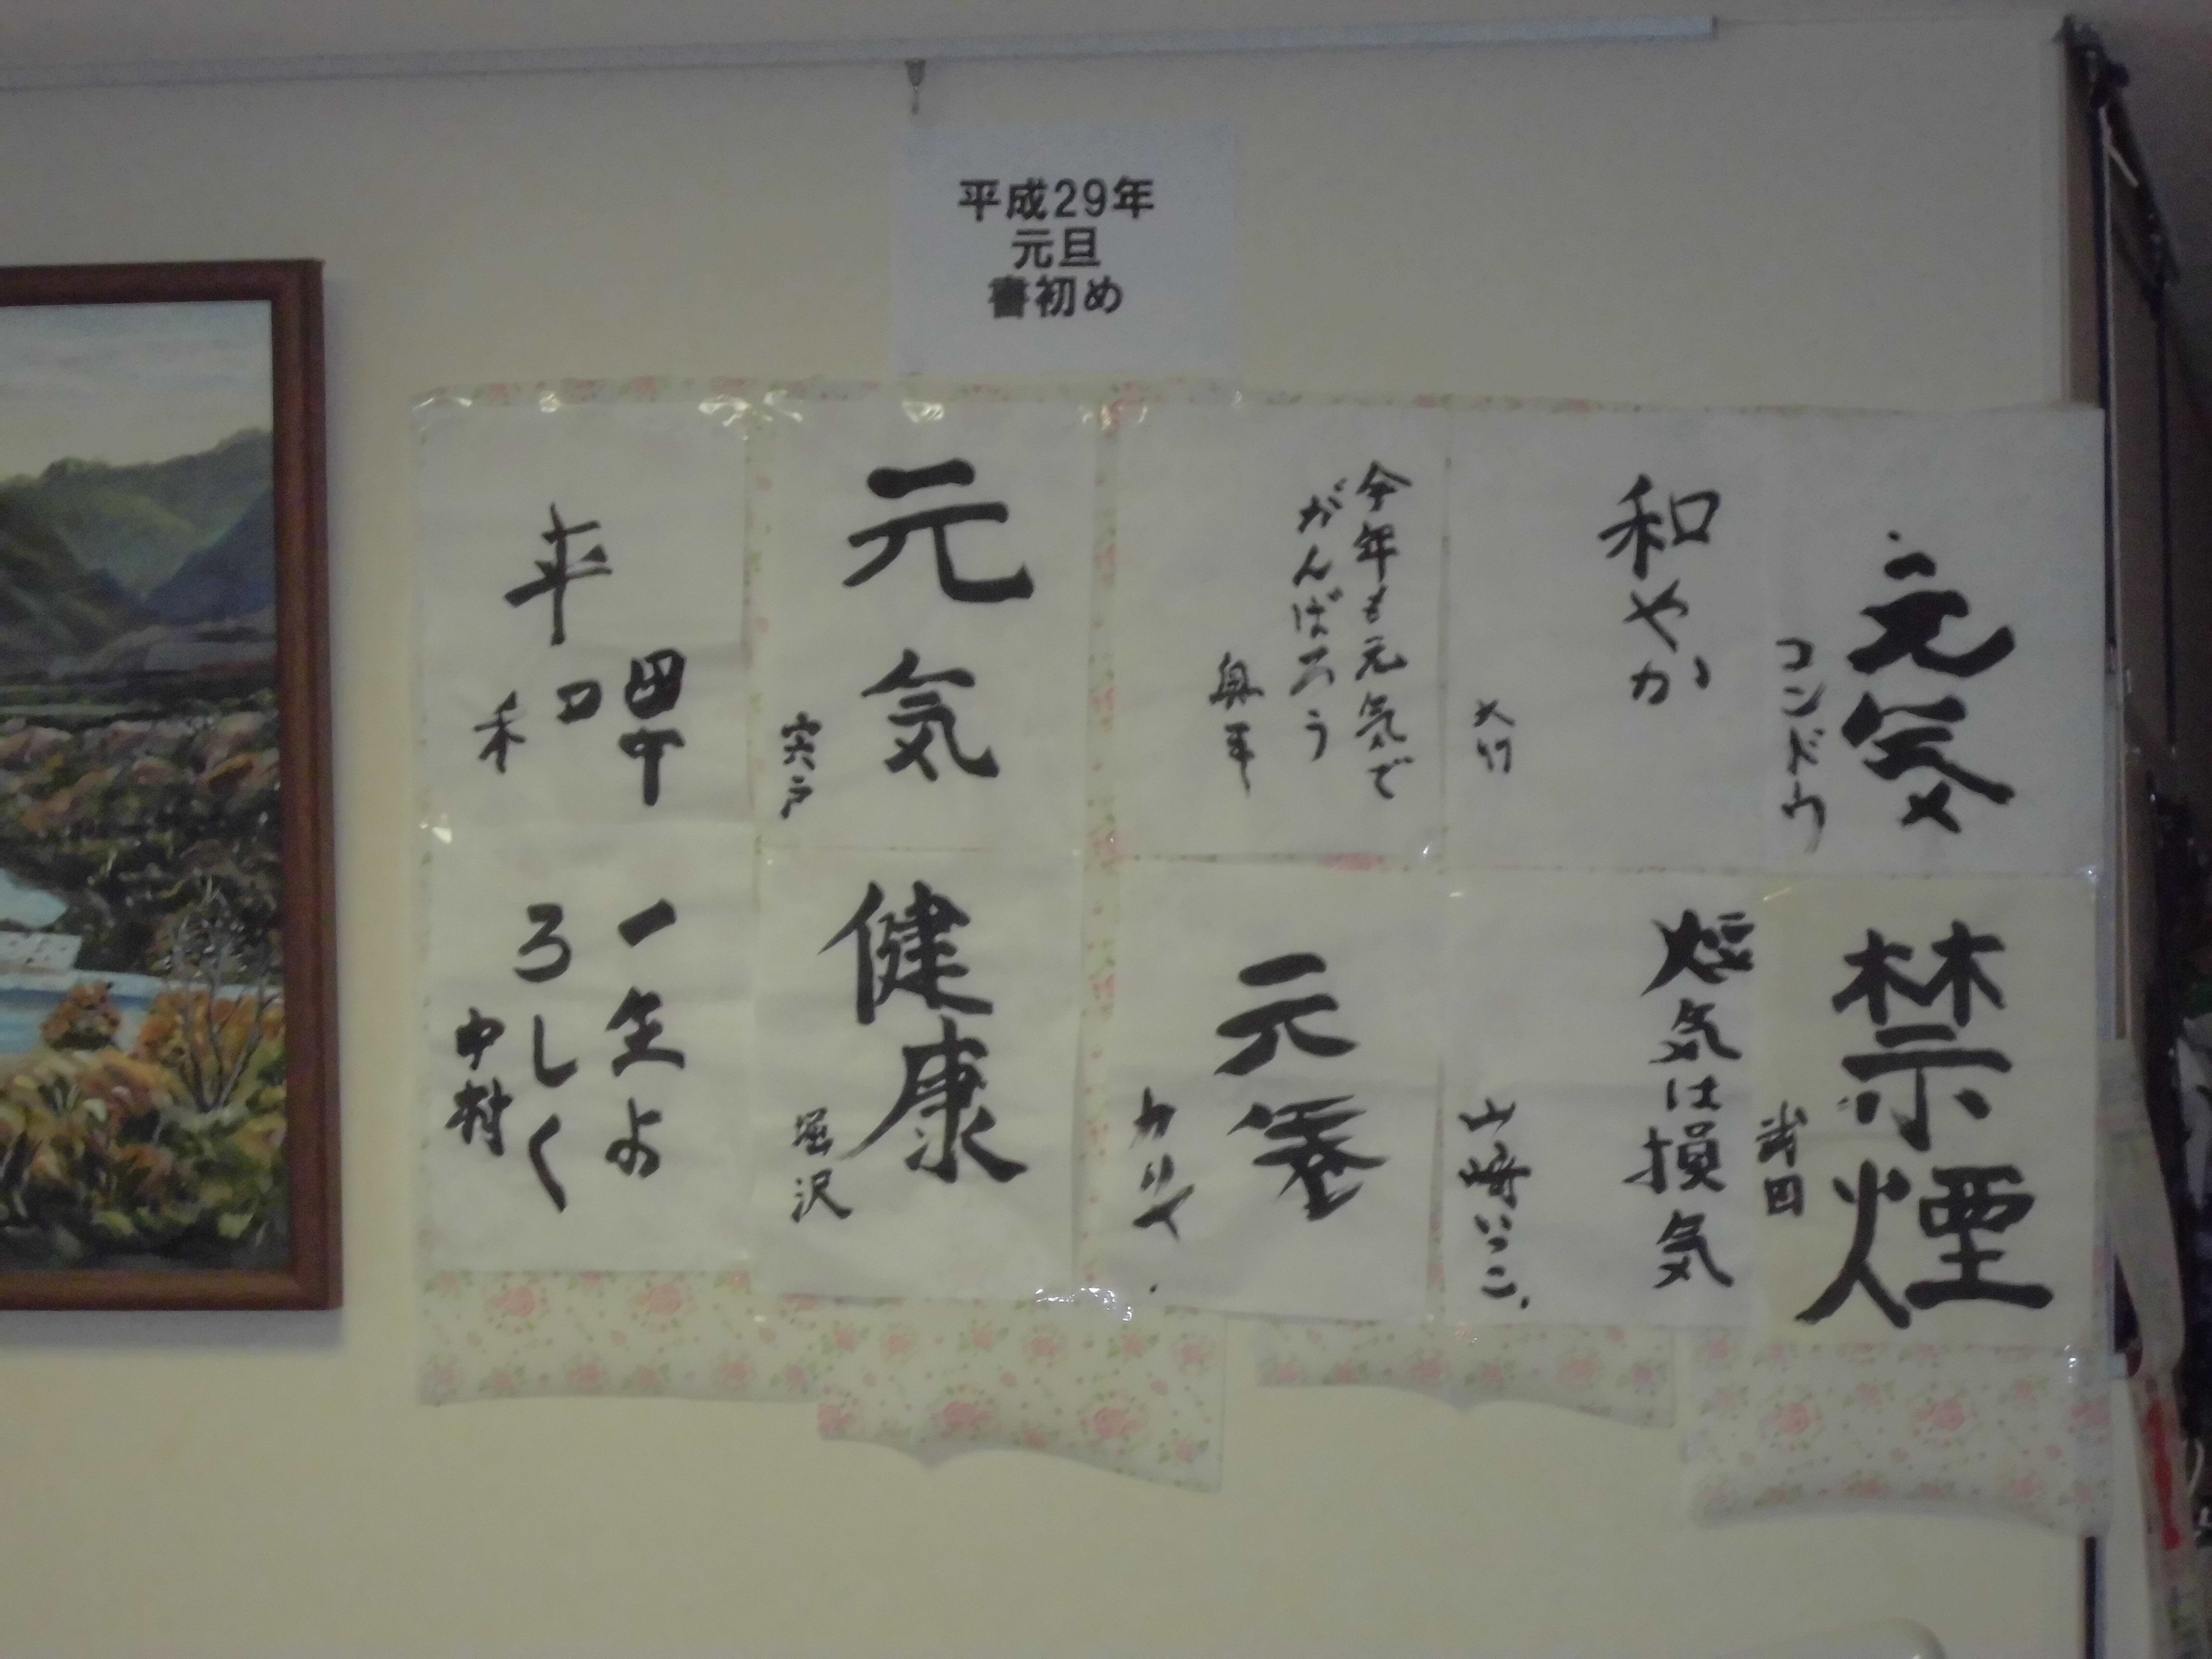 平成29年
元旦
書初め
元気
コンドウ
和やか
大竹
今年も元気で
がんばろう
元気
宍戸
平和
禁煙
短気は損気
山崎いつこ
元気
カリヤ
健康
堀沢
一生よ
ろしく
中村